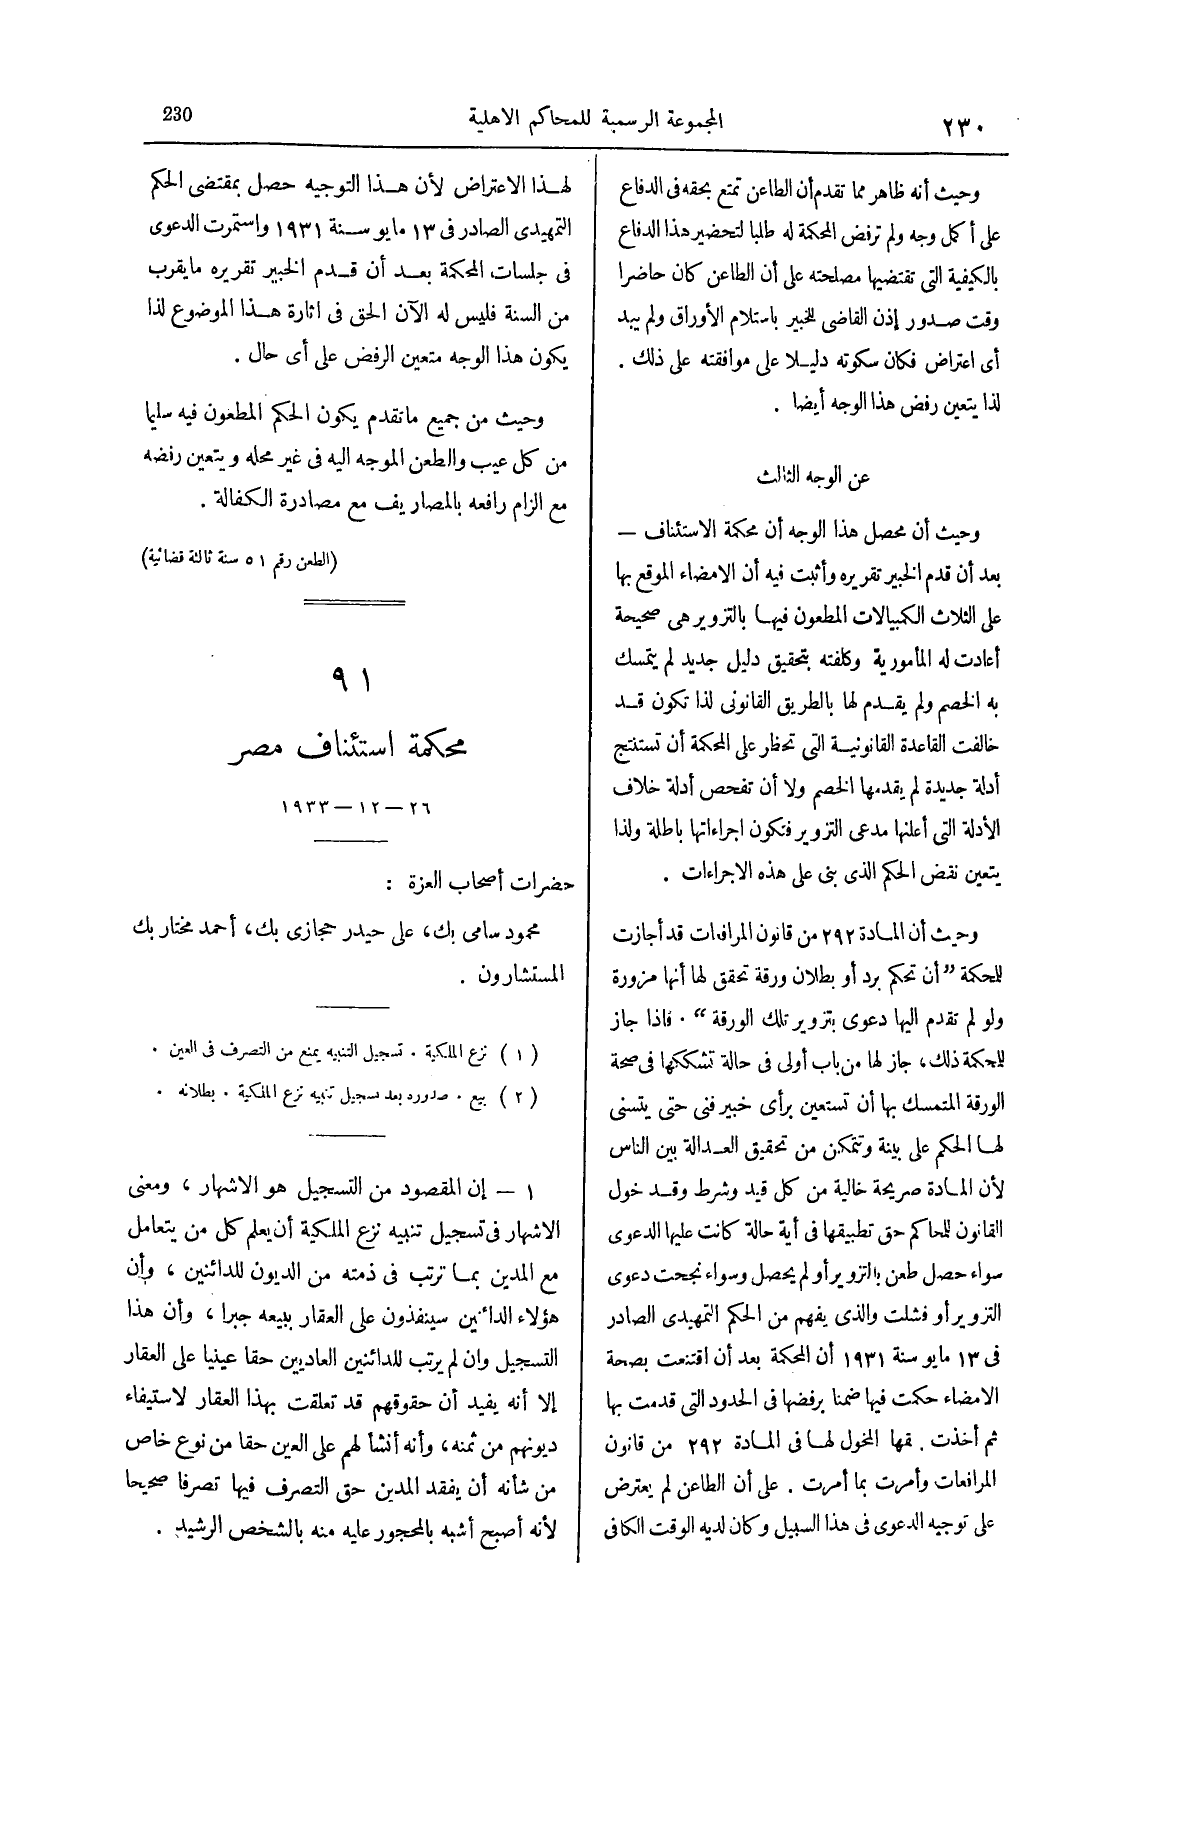 ٢٣٠
المجموعة الرسمية للمحاكم الاهلية
230
وحيث أنه ظاهر مما تقدم أن الطاعن تمتع بحقه فى الدفاع
على أكمل وجه ولم ترفض المحكمة له طلبا لتحضير هذا الدفاع
بالكيفية التى تقتضيها مصلحته على أن الطاعن كان حاضرا
وقت صدور إذن القاضى للخبير باستلام الأوراق ولم يبد
أى اعتراض فكان سكوته دليلا على موافقته على ذلك .
لذا يتعين رفض هذا الوجه أيضا .
عن الوجه الثالث
وحيث أن محصل هذا الوجه أن محكمة الاستئناف —
بعد أن قدم الخبير تقريره وأثبت فيه أن الامضاء الموقع بها
على الثلاث الكمبيالات المطعون فيها بالتزوير هى صحيحة
أعادت له المأمورية وكلفته بتحقيق دليل جديد لم يتمسك
به الخصم ولم يقدم لها بالطريق القانونى لذا تكون قد
خالفت القاعدة القانونية التى تحظر على المحكمة أن تستنتج
أدلة جديدة لم يقدمها الخصم ولا أن تفحص أدلة خلاف
الأدلة التى أعلنها مدعى التزوير فتكون اجراءاتها باطلة ولذا
يتعين نقض الحكم الذى بنى على هذه الاجراءات .
وحيث أن المادة ٢٩٢ من قانون المرافعات قد أجازت
للمحكمة "أن تحكم برد أو بطلان ورقة تحقق لها أنها مزورة
ولو لم تقدم اليها دعوى بتزوير تلك الورقة" . فاذا جاز
للمحكمة ذلك، جاز لها من باب أولى فى حالة تشككها فى صحة
الورقة المتمسك بها أن تستعين برأى خبير فنى حتى يتسنى
لها الحكم على بينة وتتمكن من تحقيق العدالة بين الناس
لأن المادة صريحة خالية من كل قيد وشرط وقد خول
القانون للمحاكم حق تطبيقها فى أية حالة كانت عليها الدعوى
سواء حصل طعن بالتزوير أو لم يحصل وسواء نجحت دعوى
التزوير أو فشلت والذى يفهم من الحكم التمهيدى الصادر
فى ١٣ مايو سنة ١٩٣١ أن المحكمة بعد أن اقتنعت بصحة
الامضاء حكمت فيها ضمنا برفضها فى الحدود التى قدمت بها
ثم أخذت بحقها المخول لها فى المادة ٢٩٢ من قانون
المرافعات وأمرت بما أمرت . على أن الطاعن لم يعترض
على توجيه الدعوى فى هذا السبيل وكان لديه الوقت الكافى
لهذا الاعتراض لأن هذا التوجيه حصل بمقتضى الحكم
التمهيدى الصادر فى ١٣ مايو سنة ١٩٣١ واستمرت الدعوى
فى جلسات المحكمة بعد أن قدم الخبير تقريره مايقرب
من السنة فليس له الآن الحق فى اثارة هذا الموضوع لذا
يكون هذا الوجه متعين الرفض على أى حال .
وحيث من جميع ماتقدم يكون الحكم المطعون فيه سليما
من كل عيب والطعن الموجه اليه فى غير محله ويتعين رفضه
مع الزام رافعه بالمصاريف مع مصادرة الكفالة .
(الطعن رقم ٥١ سنة ثالثة قضائية)
٩١
محكمة استئناف مصر
٢٦ — ١٢ — ١٩٣٣
حضرات أصحاب العزة :
محمود سامى بك، على حيدر حجازى بك، أحمد مختار بك
المستشارون .
(١) نزع الملكية . تسجيل التنبيه يمنع من التصرف فى العين .
(٢) بيع . صدوره بعد تسجيل تنبيه نزع الملكية . بطلانه .
١ — إن المقصود من التسجيل هو الاشهار ، ومعنى
الاشهار فى تسجيل تنبيه نزع الملكية أن يعلم كل من يتعامل
مع المدين بما ترتب فى ذمته من الديون للدائنين ، وأن
هؤلاء الدائنين سينفذون على العقار ببيعه جبرا ، وأن هذا
التسجيل وان لم يرتب للدائنين العاديين حقا عينيا على العقار
إلا أنه يفيد أن حقوقهم قد تعلقت بهذا العقار لاستيفاء
ديونهم من ثمنه، وأنه أنشأ لهم على العين حقا من نوع خاص
من شأنه أن يفقد المدين حق التصرف فيها تصرفا صحيحا
لأنه أصبح أشبه بالمحجور عليه منه بالشخص الرشيد .